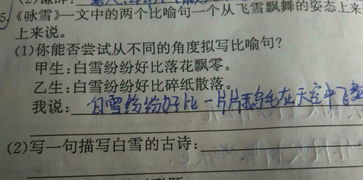 5.《咏雪》一文中的两个比喻句一个从飞雪飘舞的姿态上来
上来说。
(1)你能否尝试从不同的角度拟写比喻句?
甲生:白雪纷纷好比落花飘零。
乙生:白雪纷纷好比碎纸散落。
我说:白雪纷纷好比一片片毛在天空中飞
(2)写一句描写白雪的古诗: